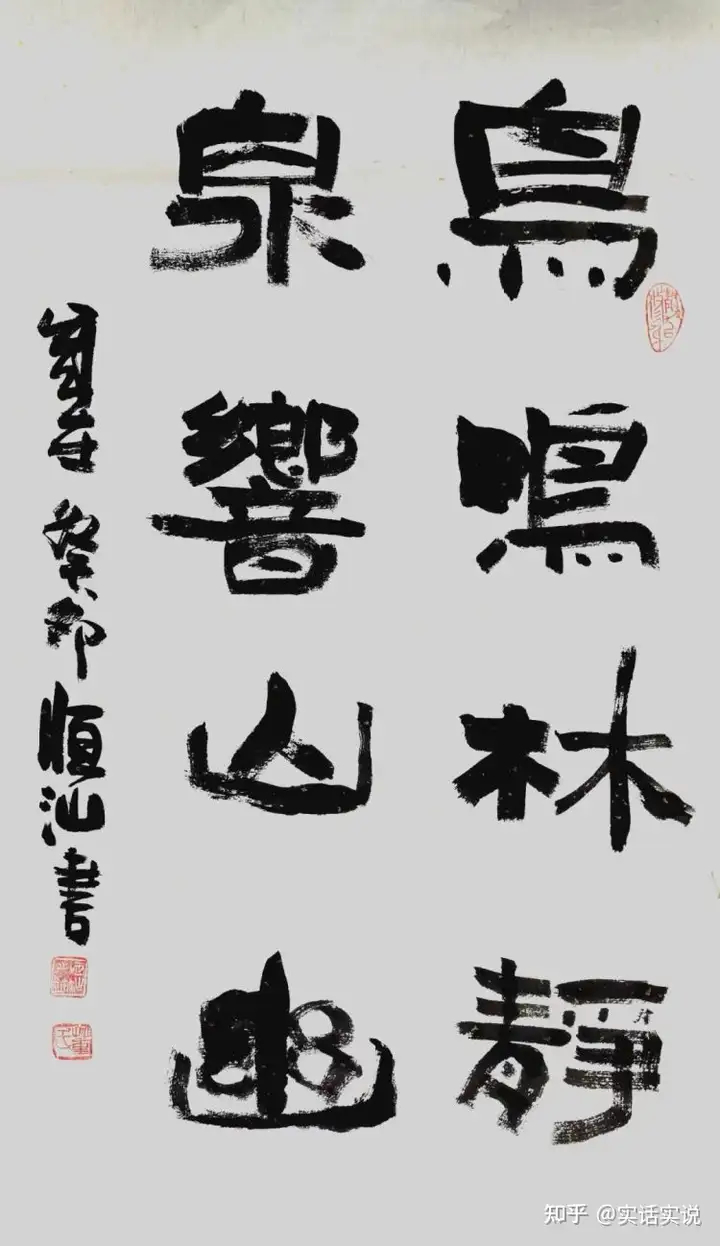 鳥鳴林靜
泉響山幽
癸卯恒汕書
知乎 @实话实说